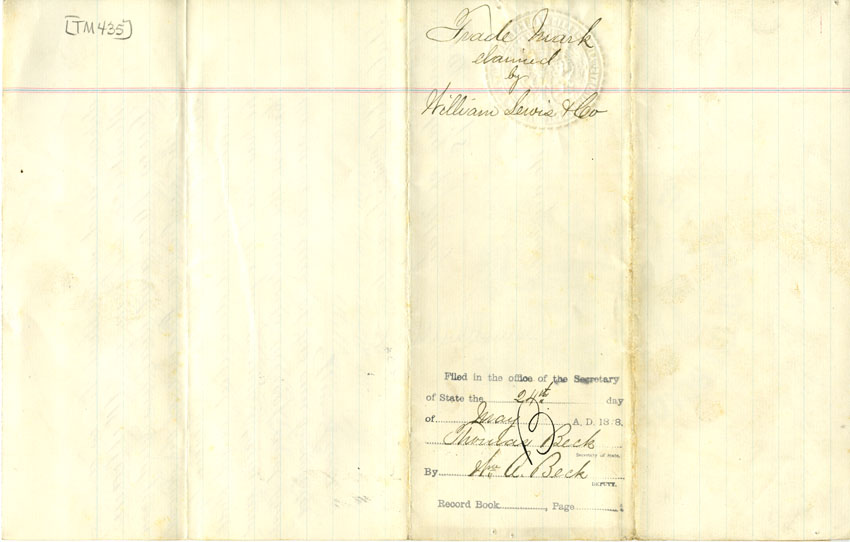 [TM435]
Trade Mark
claimed
by
William Lewis & Co
Filed in the office of the Secretary
of State the 24th day
of May A.D. 1878.
Thomas Beck
Secretary of State.
By Wm A. Beck
DEPUTY.
Record Book , Page